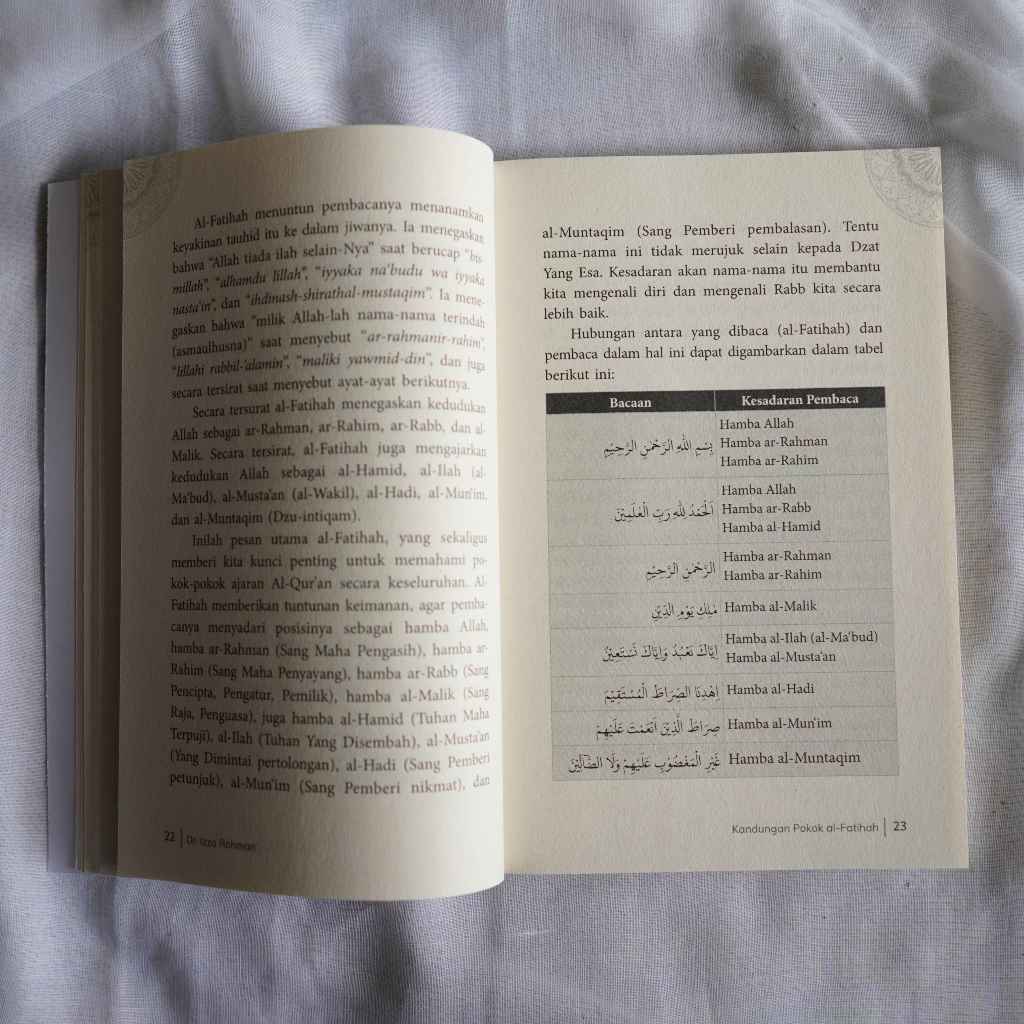 Al-Fatihah menuntun pembacanya menanamkan
keyakinan tauhid itu ke dalam jiwanya. Ia menegaskan
bahwa “Allah tiada ilah selain-Nya” saat berucap “bis-
millah”, “alhamdu lillah”, “iyyaka na‘budu wa iyyaka
nasta‘in”, dan “ihdinash-shirathal-mustaqim”. Ia mene-
gaskan bahwa “milik Allah-lah nama-nama terindah
(asmaulhusna)” saat menyebut “ar-rahmanir-rahim”,
“lillahi rabbil-‘alamin”, “maliki yawmid-din”, dan juga
secara tersirat saat menyebut ayat-ayat berikutnya.
Secara tersurat al-Fatihah menegaskan kedudukan
Allah sebagai ar-Rahman, ar-Rahim, ar-Rabb, dan al-
Malik. Secara tersirat, al-Fatihah juga mengajarkan
kedudukan Allah sebagai al-Hamid, al-Ilah (al-
Ma‘bud), al-Musta‘an (al-Wakil), al-Hadi, al-Mun‘im,
dan al-Muntaqim (Dzu-intiqam).
Inilah pesan utama al-Fatihah, yang sekaligus
memberi kita kunci penting untuk memahami po-
kok-pokok ajaran Al-Qur’an secara keseluruhan. Al-
Fatihah memberikan tuntunan keimanan, agar pemba-
canya menyadari posisinya sebagai hamba Allah,
hamba ar-Rahman (Sang Maha Pengasih), hamba ar-
Rahim (Sang Maha Penyayang), hamba ar-Rabb (Sang
Pencipta, Pengatur, Pemilik), hamba al-Malik (Sang
Raja, Penguasa), juga hamba al-Hamid (Tuhan Maha
Terpuji), al-Ilah (Tuhan Yang Disembah), al-Musta‘an
(Yang Dimintai pertolongan), al-Hadi (Sang Pemberi
petunjuk), al-Mun‘im (Sang Pemberi nikmat), dan
22 | Dr Izza Rohman
al-Muntaqim (Sang Pemberi pembalasan). Tentu
nama-nama ini tidak merujuk selain kepada Dzat
Yang Esa. Kesadaran akan nama-nama itu membantu
kita mengenali diri dan mengenali Rabb kita secara
lebih baik.
Hubungan antara yang dibaca (al-Fatihah) dan
pembaca dalam hal ini dapat digambarkan dalam tabel
berikut ini:
Bacaan Kesadaran Pembaca
Hamba Allah
بِسْمِ اللّٰهِ الرَّحْمٰنِ الرَّحِيْمِ Hamba ar-Rahman
Hamba ar-Rahim
Hamba Allah
اَلْحَمْدُ لِلّٰهِ رَبِّ الْعٰلَمِيْنَ Hamba ar-Rabb
Hamba al-Hamid
Hamba ar-Rahman
الرَّحْمٰنِ الرَّحِيْمِ Hamba ar-Rahim
مٰلِكِ يَوْمِ الدِّيْنِ Hamba al-Malik
Hamba al-Ilah (al-Ma‘bud)
اِيَّاكَ نَعْبُدُ وَاِيَّاكَ نَسْتَعِيْنُ Hamba al-Musta‘an
اِهْدِنَا الصِّرَاطَ الْمُسْتَقِيْمَ Hamba al-Hadi
صِرَاطَ الَّذِيْنَ اَنْعَمْتَ عَلَيْهِمْ Hamba al-Mun‘im
غَيْرِ الْمَغْضُوْبِ عَلَيْهِمْ وَلَا الضَّاۤلِّيْنَ Hamba al-Muntaqim
Kandungan Pokok al-Fatihah | 23